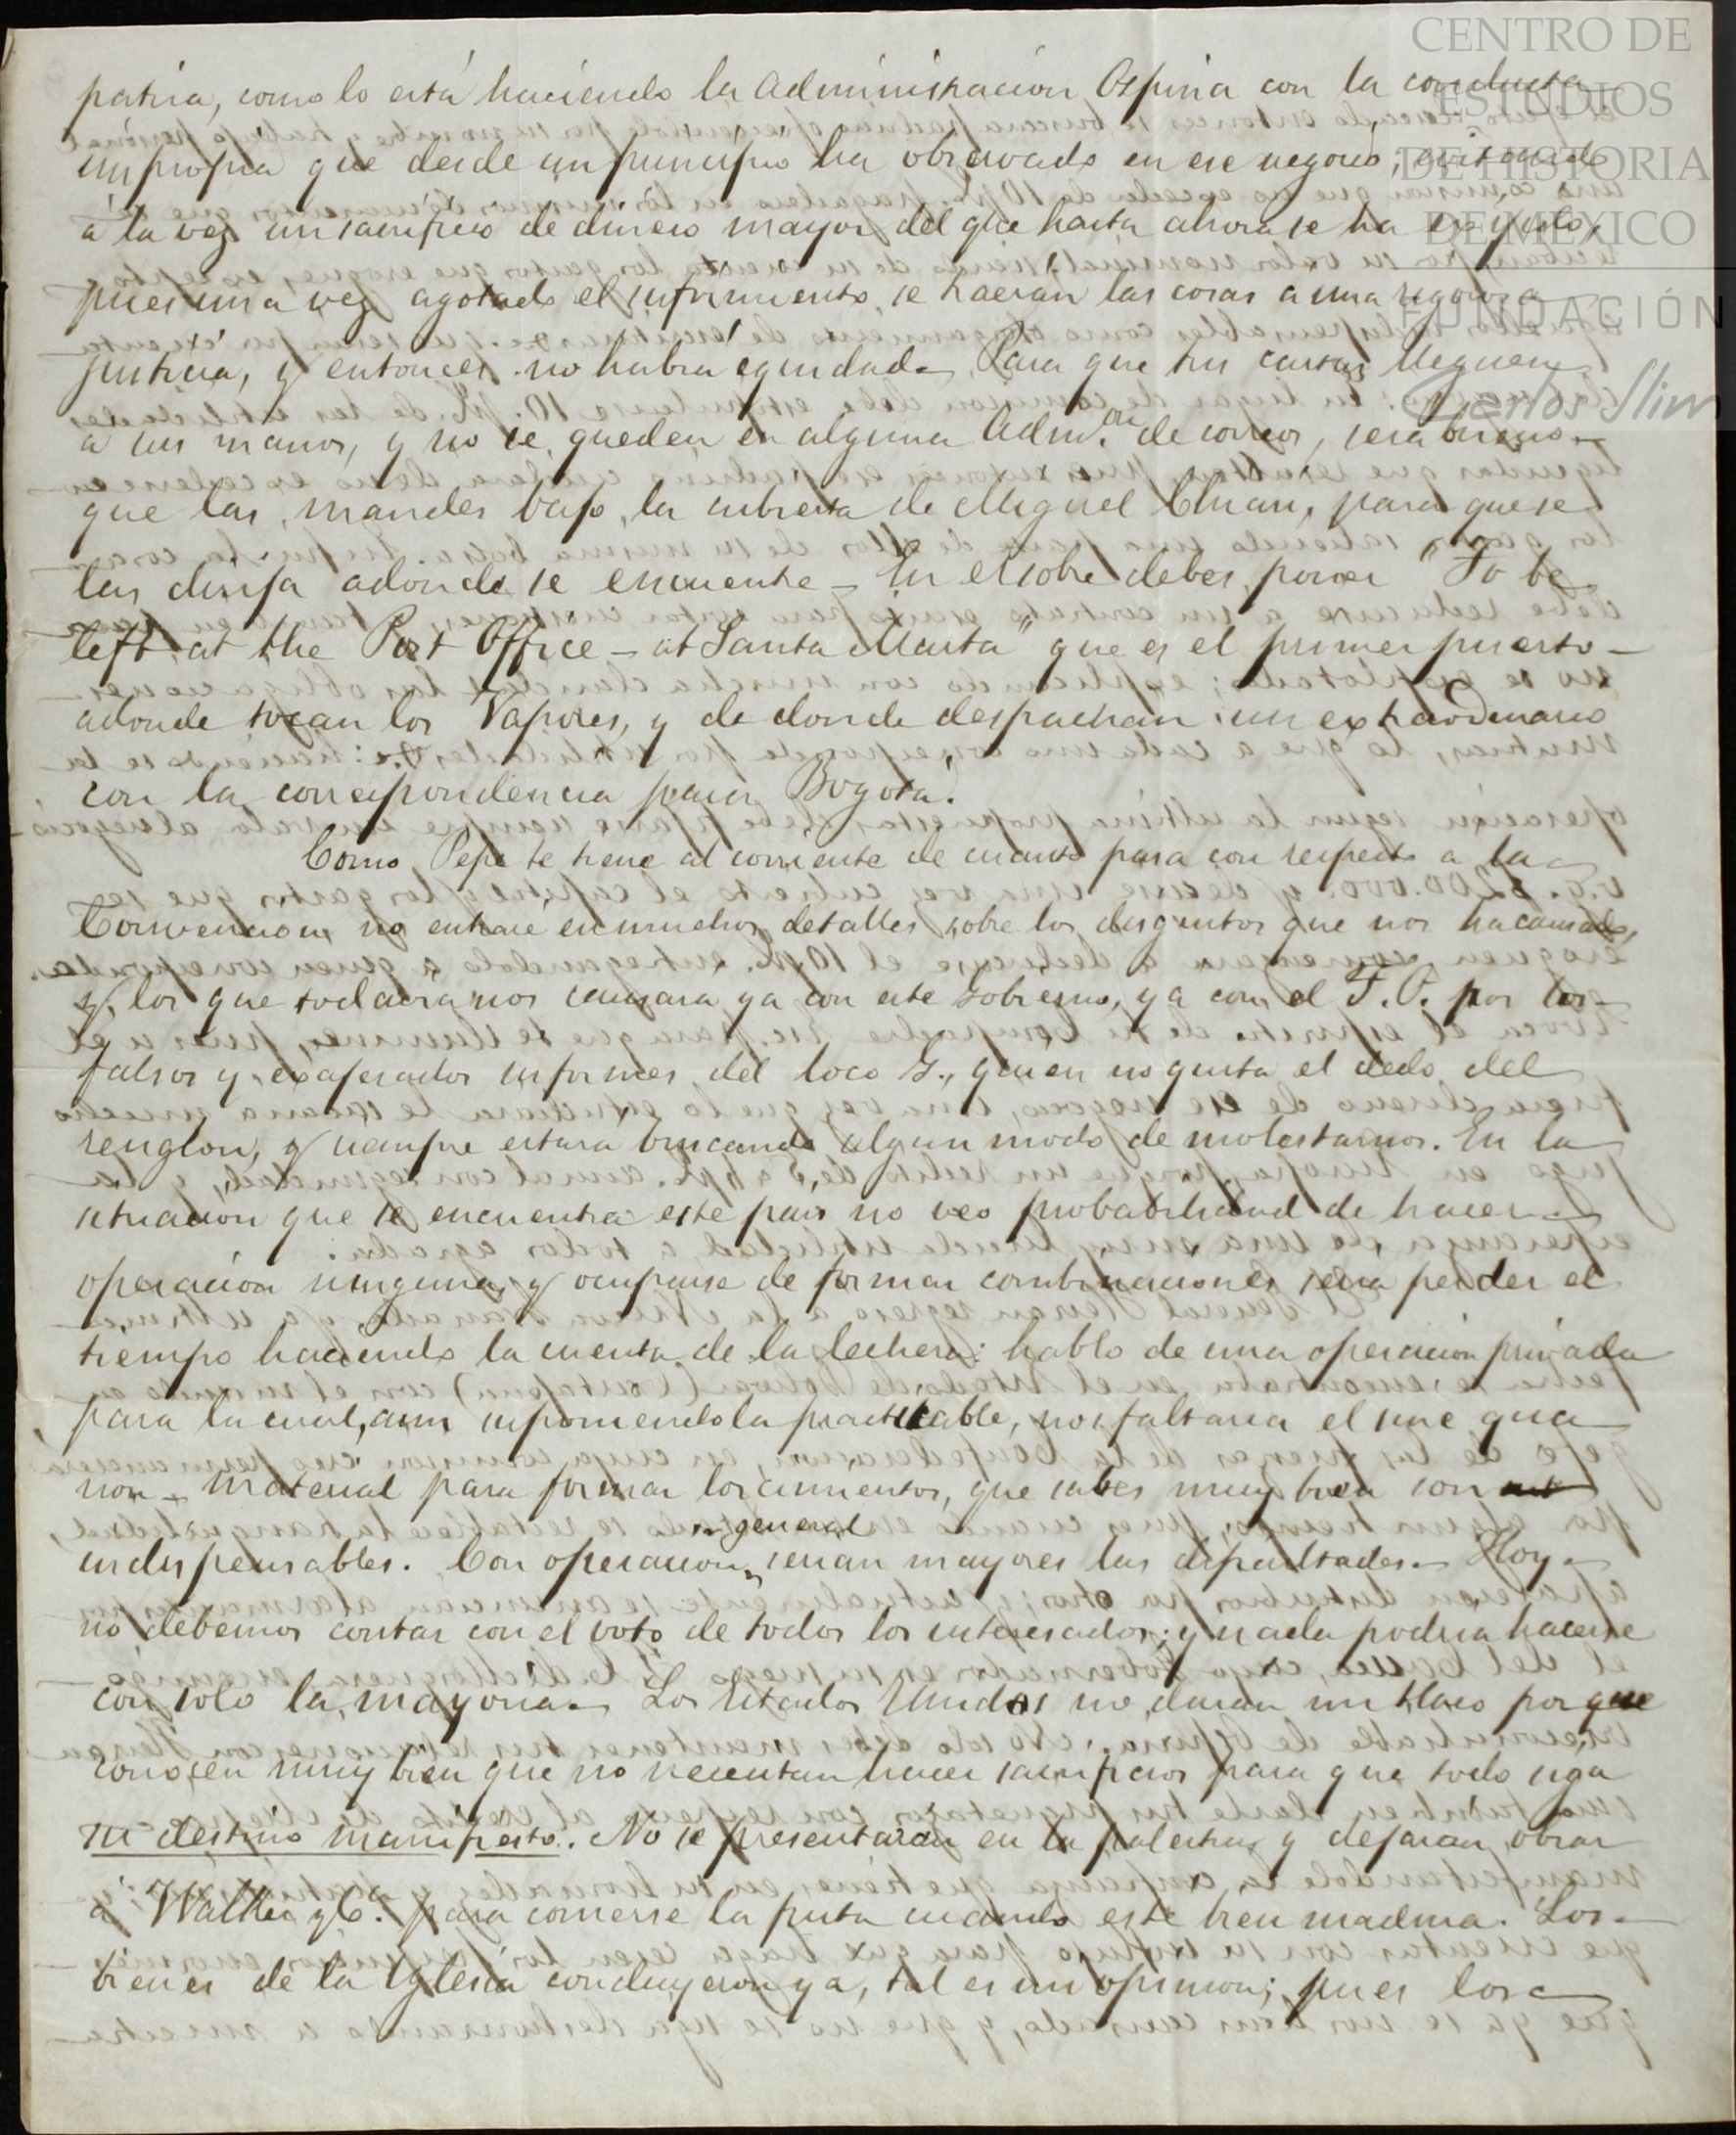 CENTRO DE
ESTUDIOS
DE HISTORIA
DE MÉXICO
FUNDACIÓN
Carlos Slim
patria, como lo está haciendo la Administracion Ospina con la conducta
impropia que desde un principio ha observado en ese negocio; evitando
á la vez un sacrificio de dinero mayor del que hasta ahora se ha exijido,
pues una vez agotado el sufrimiento se haran las cosas a una rigorosa
justicia, y entonces no habra equidad. Para que tus cartas lleguen
a sus manos, y no se queden en alguna Admon. de correos, sera bueno
que las mandes bajo la cubierta de Miguel
para que se
las dirija adonde se encuentre – En el sobre debes poner "To be
left at the Post Office – at Santa Marta" que es el primer puerto –
adonde tocan los Vapores, y de donde despachan un extraordinario
con la correspondencia para Bogotá.
Como Pepe te tiene al corriente de cuanto pasa con respecto a la
Convencion no entraré en muchos detalles sobre los disgustos que nos ha causado,
y los que todavia nos causara ya con este Gobierno, ya con el F. O. por los
falsos y exajerados informes del loco G., quien no quita el dedo del
renglon, y siempre estara buscando algun modo de molestarnos. En la
situacion que se encuentra este pais no veo probabilidad de hacer
operacion ninguna, y ocuparse de formar combinaciones seria perder el
tiempo haciendo la cuenta de la lechera: hablo de una operacion privada
para la cual, aun suponiendola practicable, nos faltaria el sine qua
non – material para formar los cimientos, que sabes muy bien son
indispensables. Con operacion en general serian mayores las dificultades. Hoy
no debemos contar con el voto de todos los interesados; y nada podria hacerse
con solo la mayoria. Los Estados Unidos no daran un tlaco porque
conocen muy bien que no necesitan hacer sacrificios para que todo siga
su destino manifiesto. No se presentaran en la palestra y dejaran obrar
a Walker y Ca. para comerse la fruta cuando esté bien madura. Los
bienes de la Iglesia concluyeron ya, tal es mi opinion; pues los